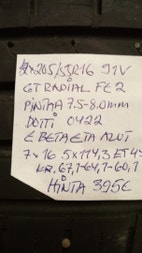 4x205/55R16 91V
GT RADIAL FE2
PINTAA 7.5-8.0mm
DOTTI 0422
E BETA ETA ALUT
7x16 5x114,3 ET4
KR. 67,1-64,1-60,1
HINTA 395€